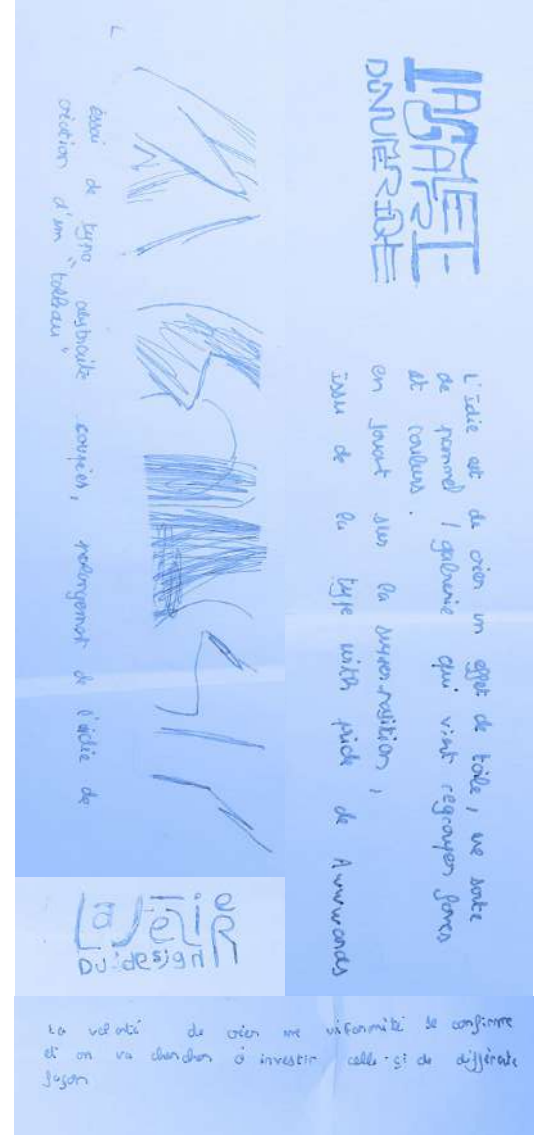 DU NUMERIQUE
L'idée est de créer un effet de toile, une sorte
de pannel / galerie qui vient regrouper formes
et couleurs.
en jouant sur la superposition,
issu de la type with pride de Awwwards
essai de typo abstraite coupées, prolongement de l'idée de
création d'un "tableau"
La série R
DU design
La volonté de créer une uniformité se confirme
et on va chercher à investir celle-çi de différente
façon